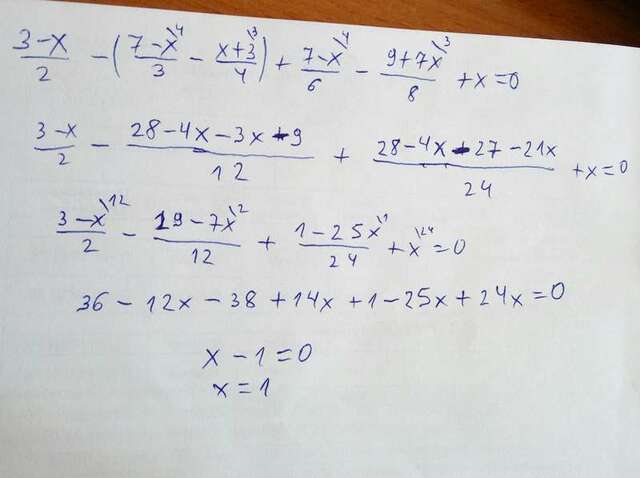 (3-x)/2 - ((7-x\4)/3 - (x+3\3)/4) + (7-x\4)/6 - (9+7x\3)/8 + x = 0
(3-x)/2 - (28-4x-3x-9)/12 + (28-4x-27-21x)/24 + x = 0
(3-x\12)/2 - (19-7x\2)/12 + (1-25x\1)/24 + x\24 = 0
36 - 12x - 38 + 14x + 1 - 25x + 24x = 0
x - 1 = 0
x = 1